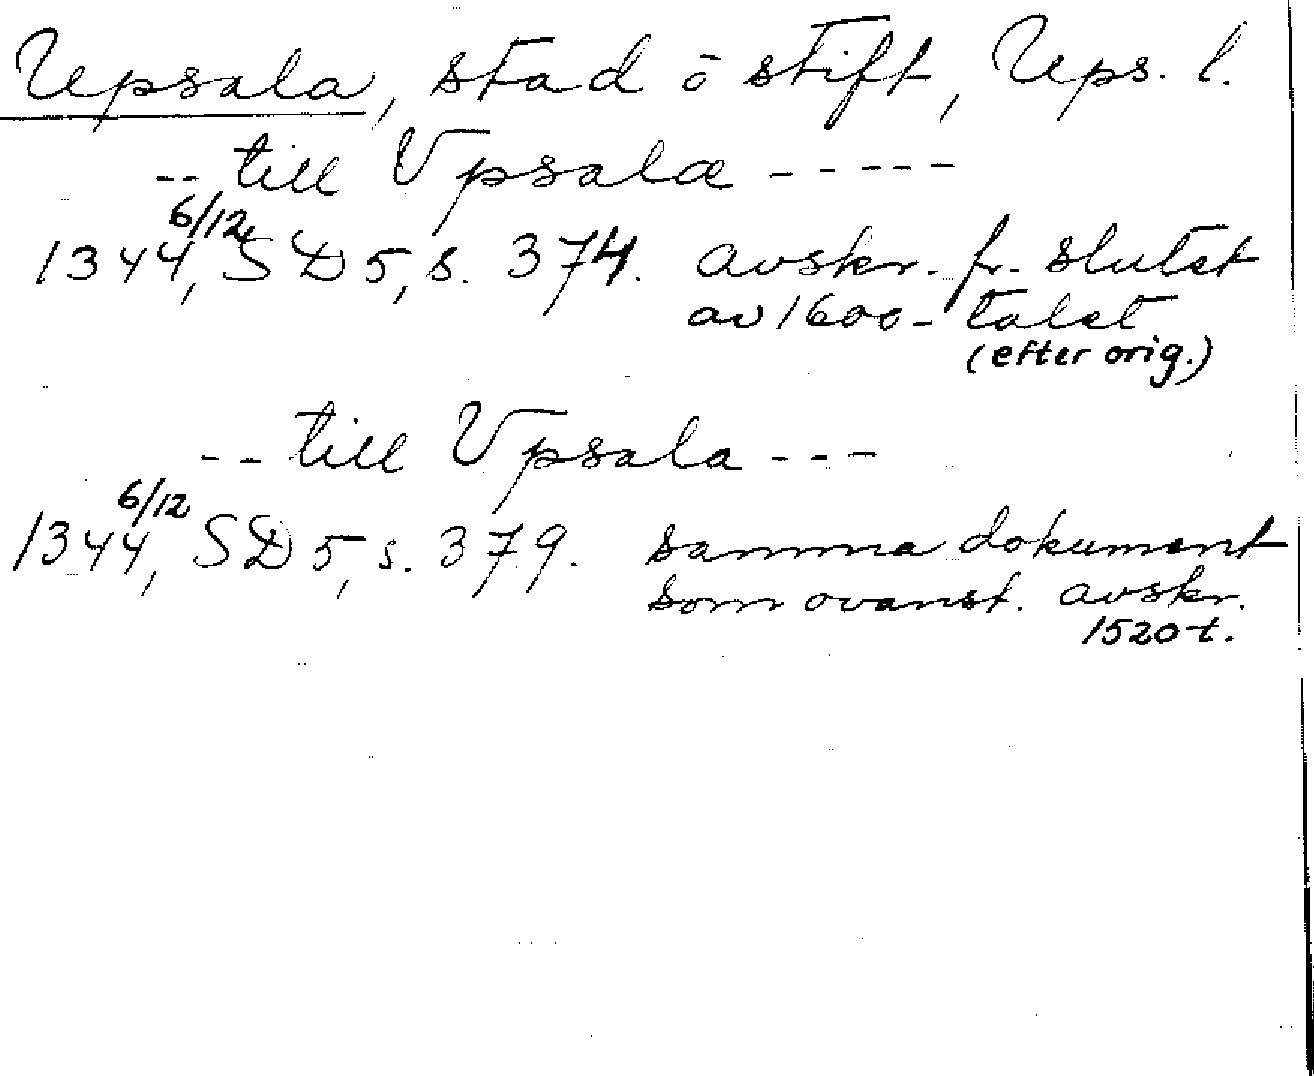 Upsala, stad o stift, Ups. l.
-- till Upsala -----
1344 6/12, SD 5, s. 374. avskr. fr. slutet
av 1600-talet
(efter orig.)
-- till Upsala ---
1344 6/12, SD 5, s. 379. samma dokument
som ovanst. avskr.
1520-t.